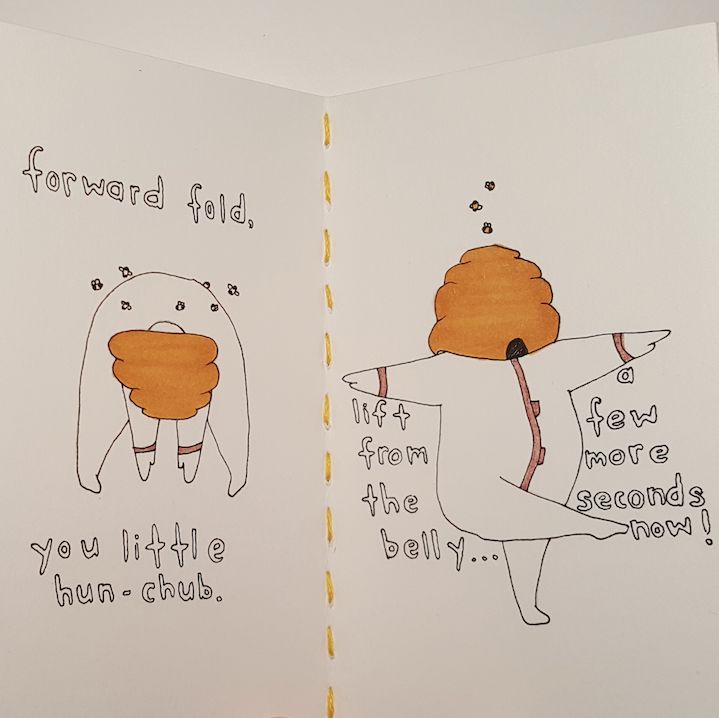 forward fold,
you little
hun-chub.
lift
from
the
belly...
a
few
more
seconds
now!